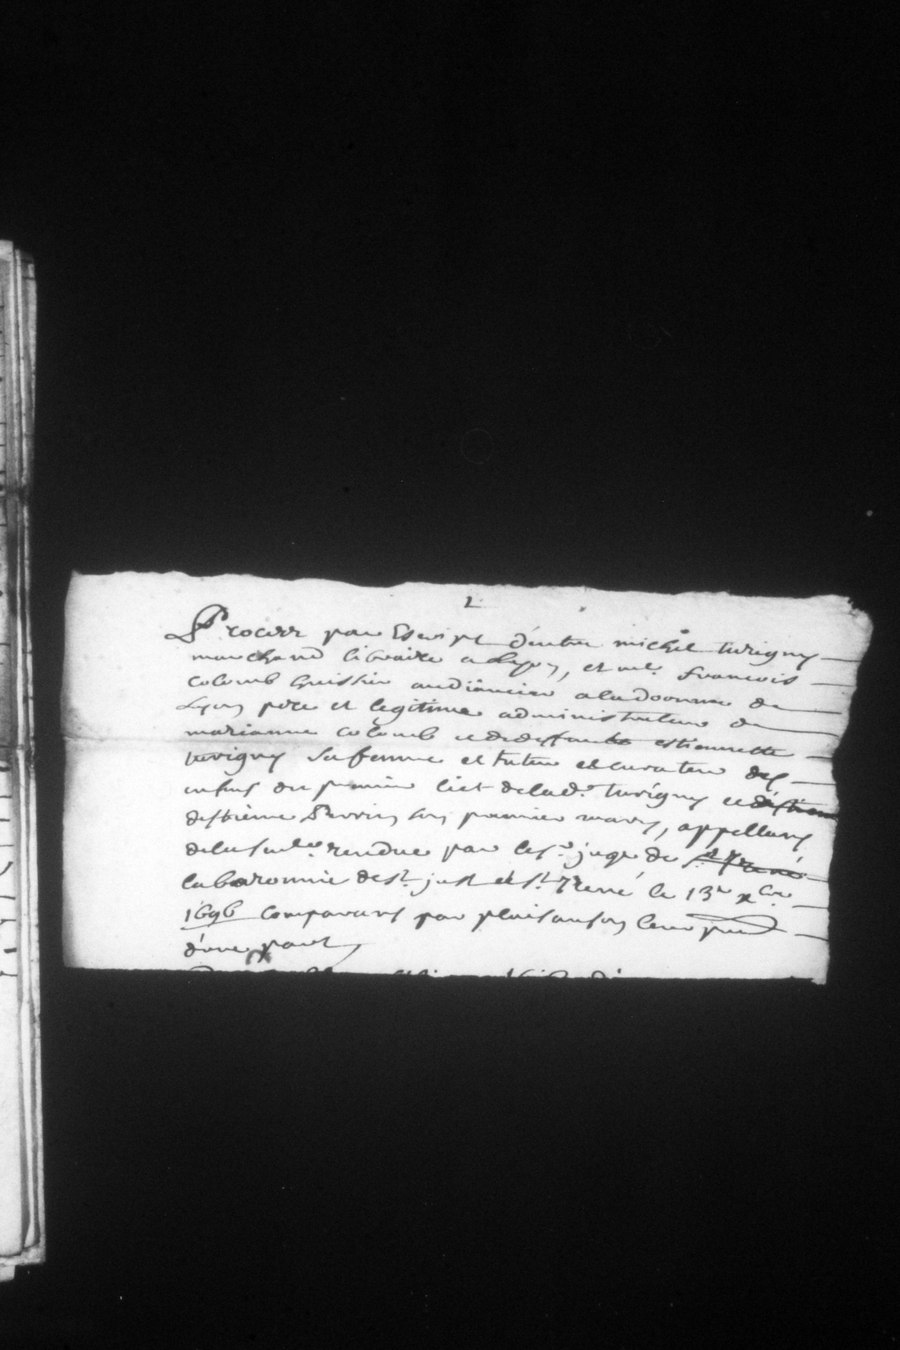 2
Procez par Escript d'entre michel turigny
marchand libraire a Lyon, et me. francois
colomb huissier audiancier a la doanne de
Lyon pere et legitime administrateur de
marianne colomb et de deffunte estiennette
turigny sa femme et tuteur et curateur des
enfans du premier lict de lad. turigny et d'estienne
destienne Perrin son premier mary, appellans
de la sentce. rendue par le sr. juge de st Irené
la baronnie de st. just et st. Irené le 13e xbre
1696 comparans par plaisanson leur pr
d'une part,